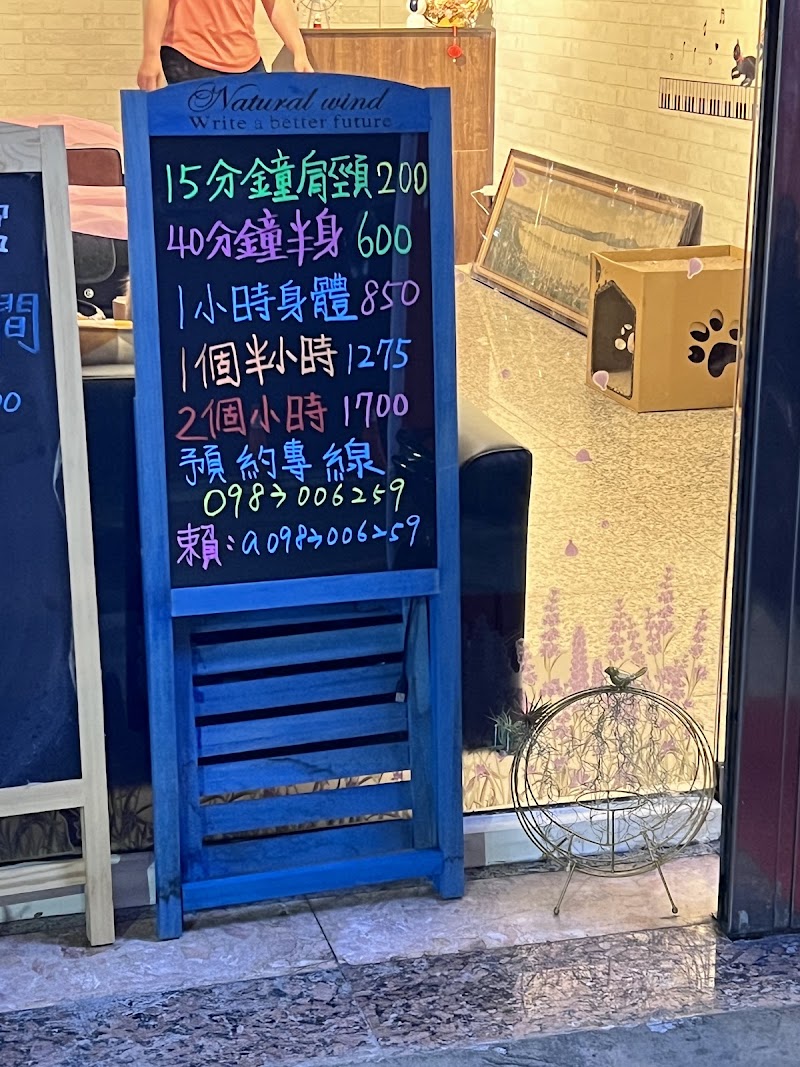 Natural wind
Write a better future
15分鐘肩頸200
40分鐘半身 600
1小時身體850
1個半小時1275
2個小時 1700
預約專線
0983006259
賴:a0983006259
間